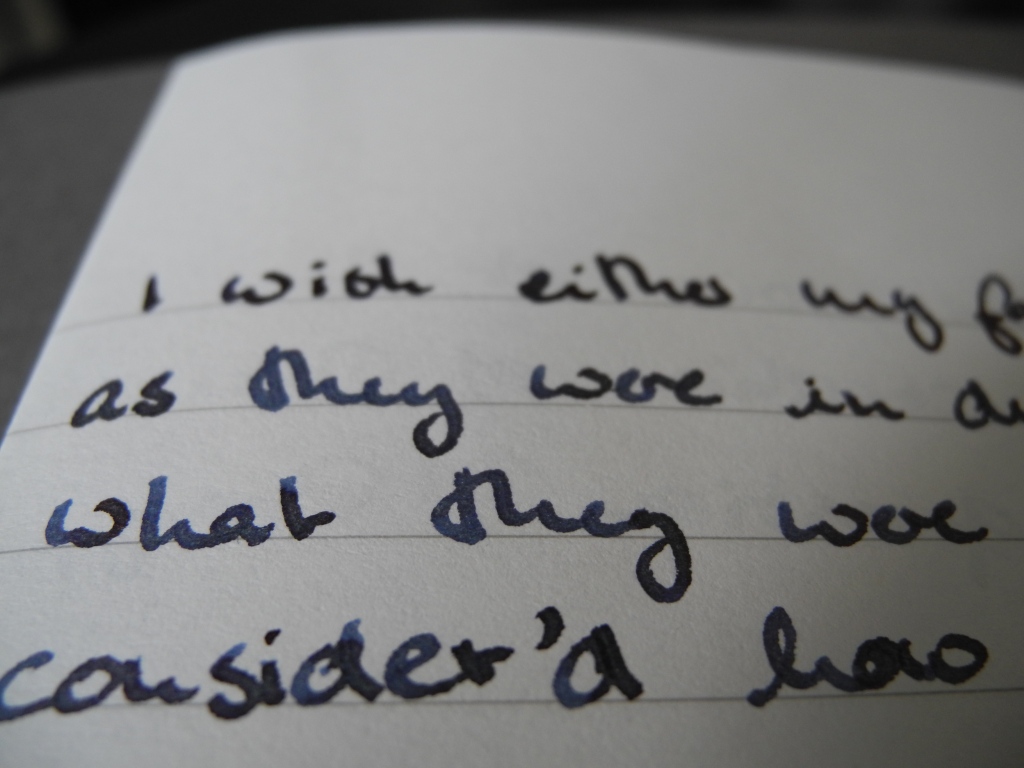 I wish either my
as they were in
what they were
consider'd how